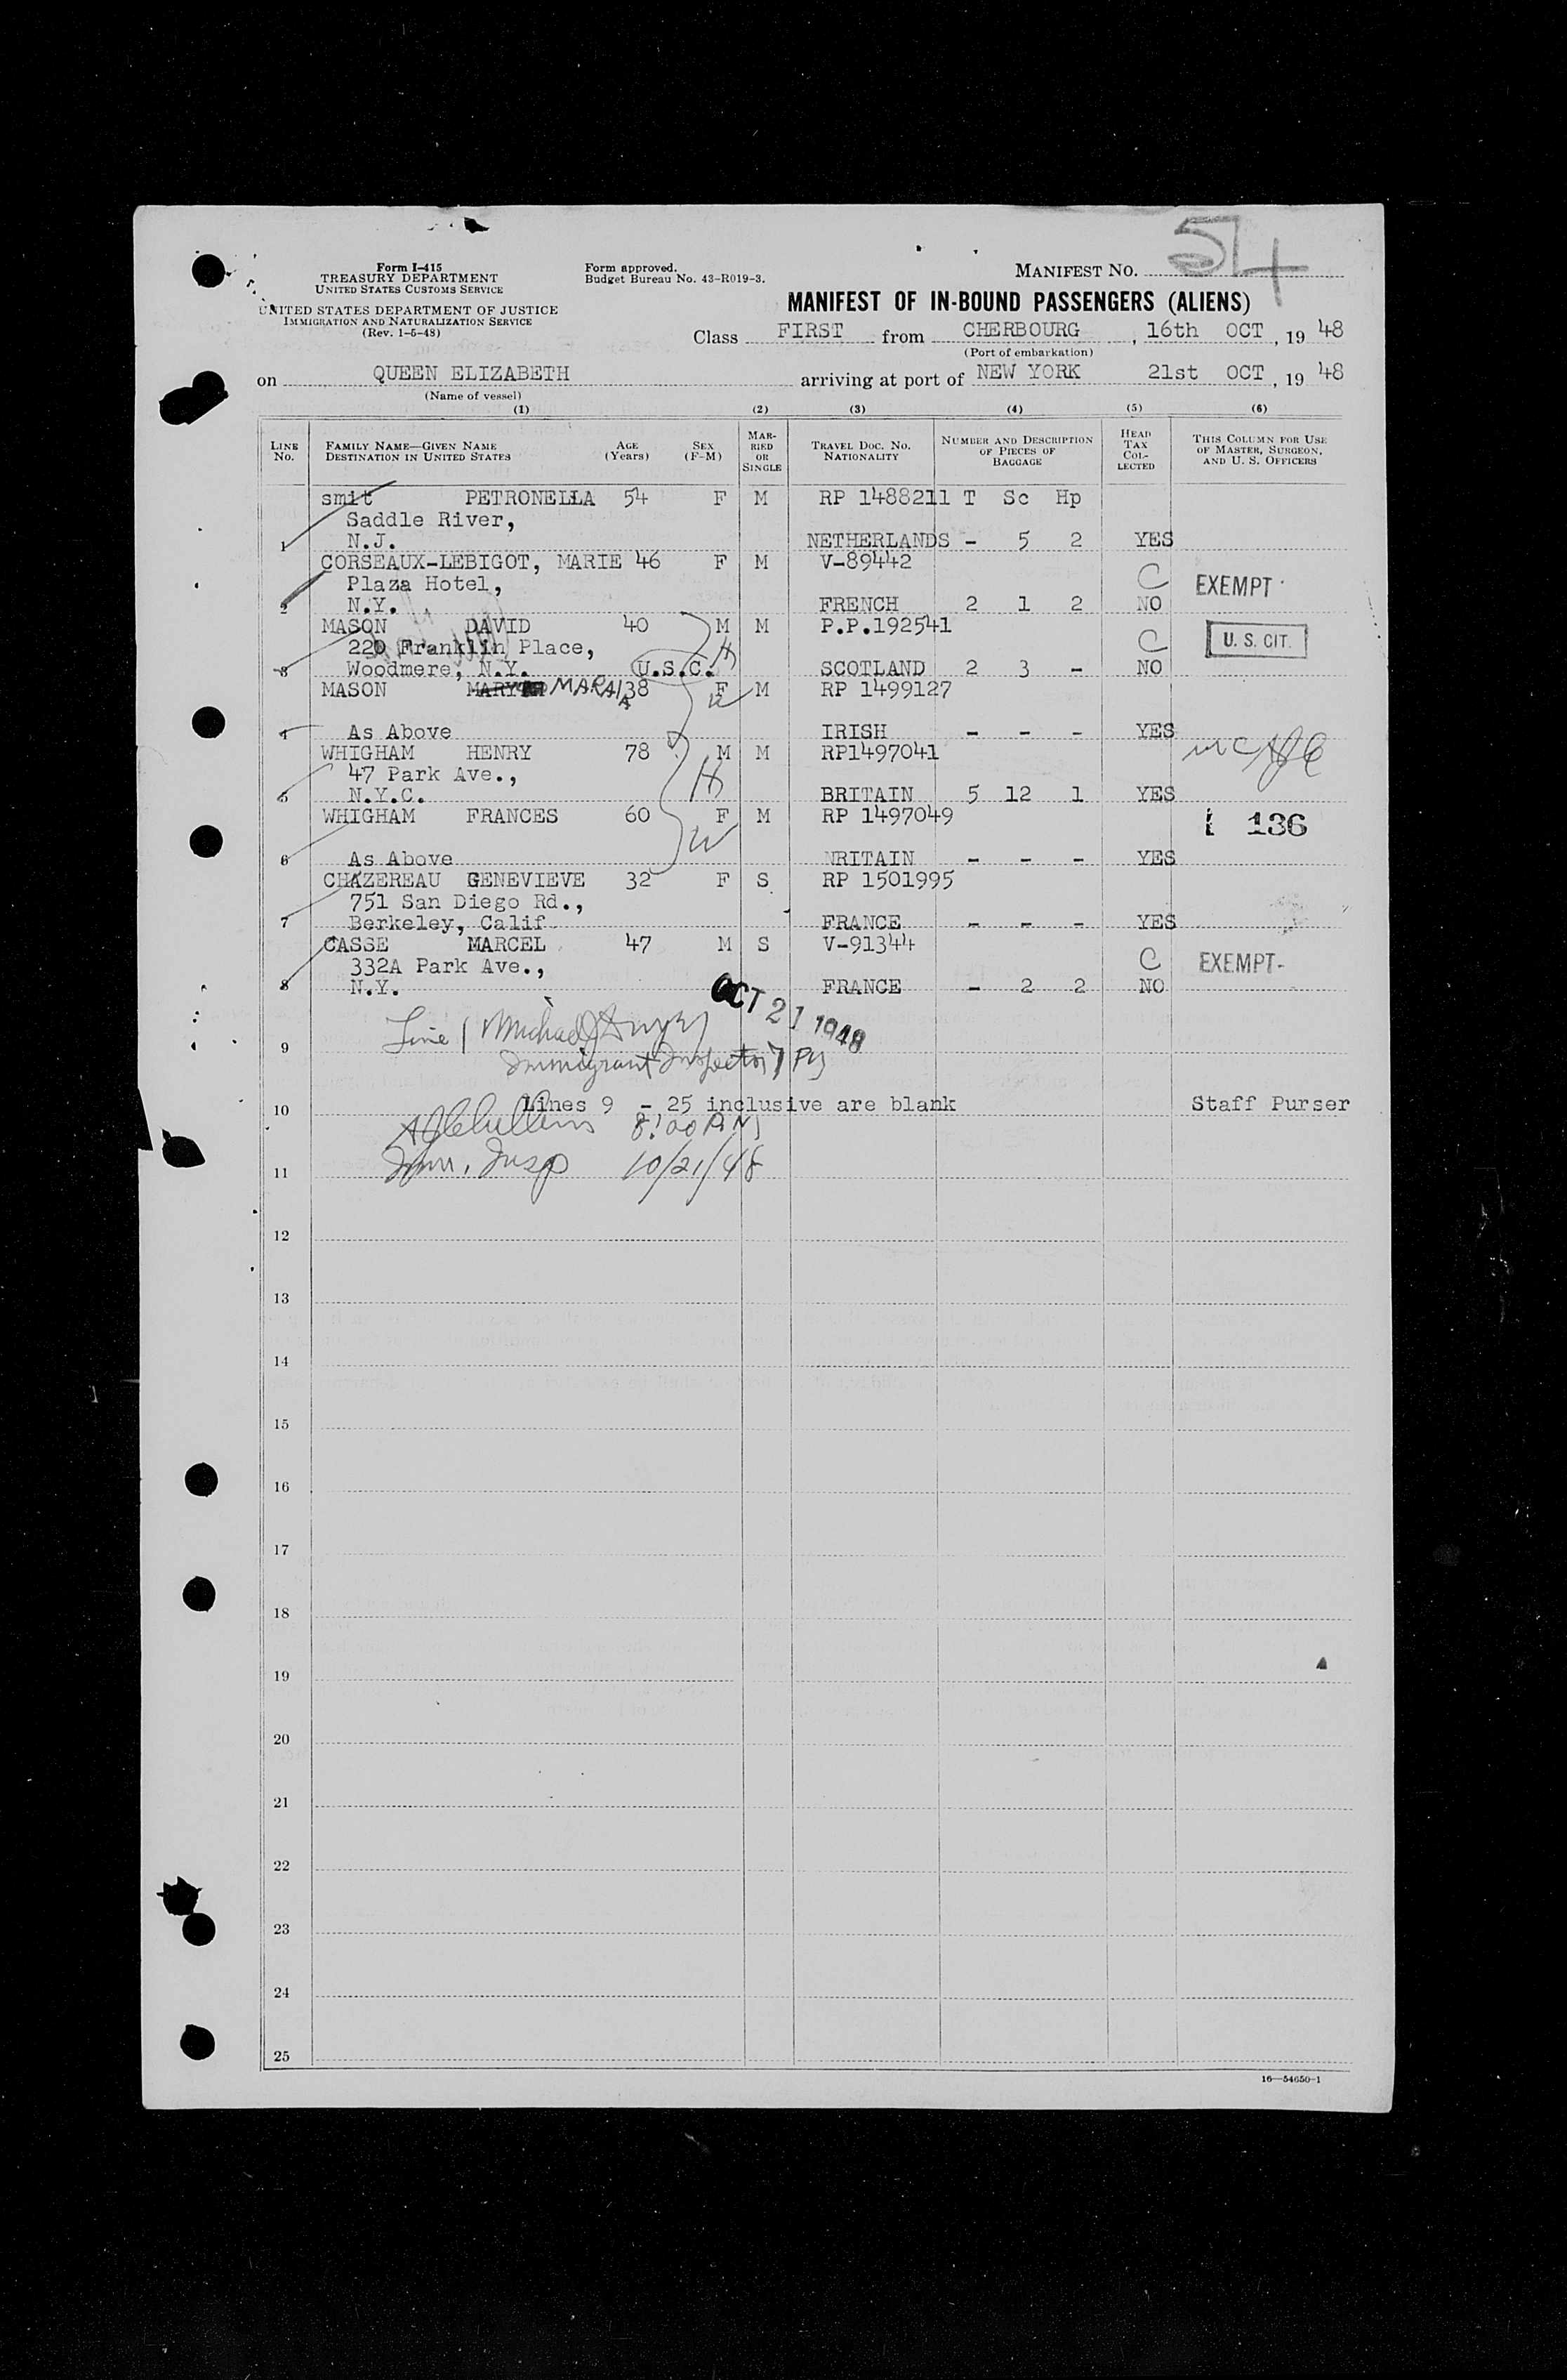 54
Form I-415
TREASURY DEPARTMENT
UNITED STATES CUSTOMS SERVICE
UNITED STATES DEPARTMENT OF JUSTICE
IMMIGRATION AND NATURALIZATION SERVICE
(Rev. 1-5-48)
Form approved.
Budget Bureau No. 43-R019-3.
MANIFEST NO.
MANIFEST OF IN-BOUND PASSENGERS (ALIENS)
Class FIRST from CHERBOURG, 16th OCT, 19 48
(Port of embarkation)
on QUEEN ELIZABETH arriving at port of NEW YORK 21st OCT, 19 48
(Name of vessel)
(1) (2) (3) (4) (5) (6)
LINE No. FAMILY NAME—GIVEN NAME DESTINATION IN UNITED STATES AGE (Years) SEX (F-M) MARRIED OR SINGLE TRAVEL DOC. NO. NATIONALITY NUMBER AND DESCRIPTION OF PIECES OF BAGGAGE HEAD TAX COLLECTED THIS COLUMN FOR USE OF MASTER, SURGEON, AND U. S. OFFICERS
smit PETRONELLA 54 F M RP 1488211 T Sc Hp
Saddle River,
1 N.J. NETHERLANDS - 5 2 YES
CORSEAUX-LEBIGOT, MARIE 46 F M V-89442
Plaza Hotel, C EXEMPT
2 N.Y. FRENCH 2 1 2 NO
MASON DAVID 40 M M P.P.192541
220 Franklin Place, H C U. S. CIT.
3 Woodmere, N.Y. U.S.C. SCOTLAND 2 3 - NO
MASON MARAIA 38 F M RP 1499127
W
4 As Above IRISH - - - YES
WHIGHAM HENRY 78 M M RP1497041
47 Park Ave., H
5 N.Y.C. BRITAIN 5 12 1 YES
WHIGHAM FRANCES 60 F M RP 1497049
W 136
6 As Above NRITAIN - - - YES
CHAZEREAU GENEVIEVE 32 F S RP 1501995
751 San Diego Rd.,
7 Berkeley, Calif FRANCE - - - YES
CASSE MARCEL 47 M S V-91344
332A Park Ave., C EXEMPT-
8 N.Y. FRANCE - 2 2 NO
OCT 21 1948
Line 1 Michael
9 Immigrant Inspector
10 Lines 9 - 25 inclusive are blank Staff Purser
8:00 PM
11 Imm. Insp 10/21/48
12
13
14
15
16
17
18
19
20
21
22
23
24
25
16—54650-1